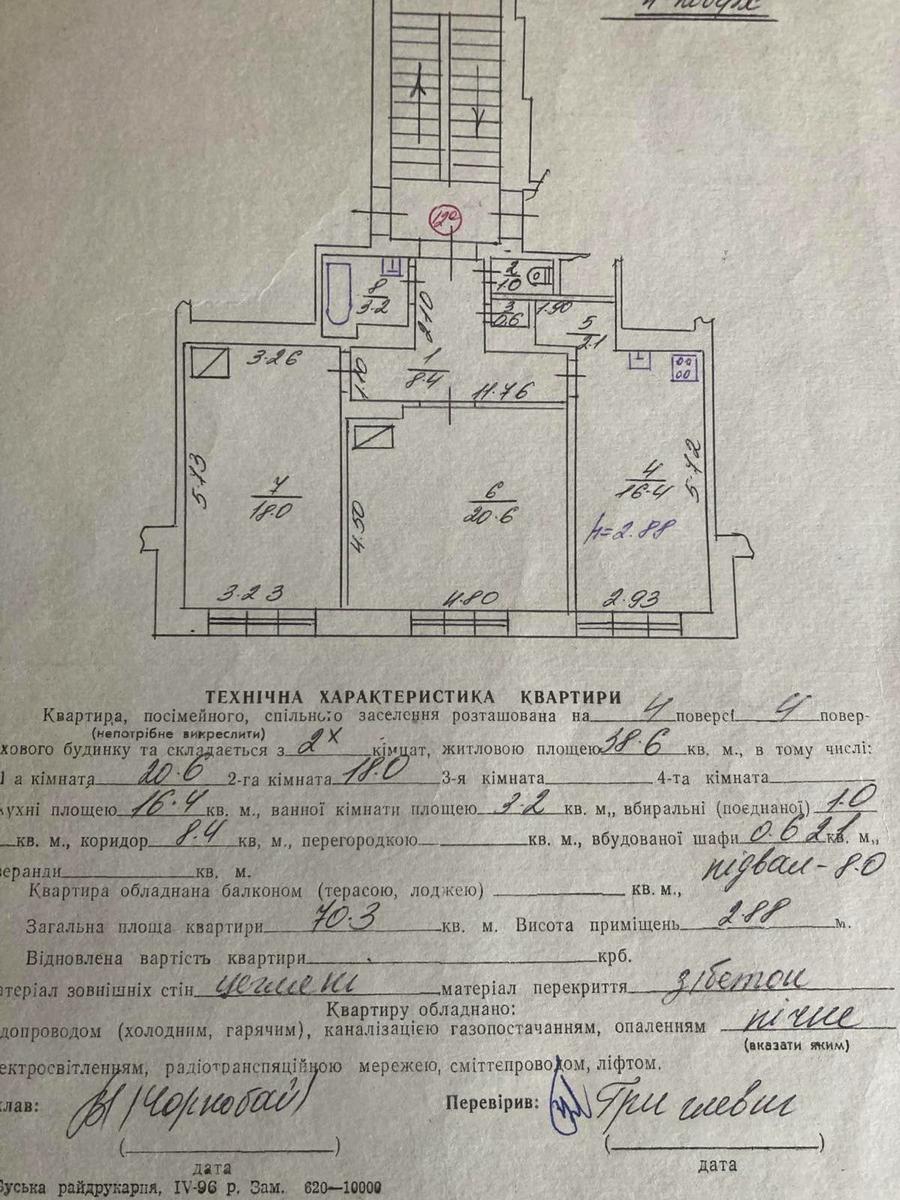 4 поверх
120
2
1.0
8
3.2
3
0.6
1.90
2.10
5
2.1
3.26
1.10
1
8.4
11.76
5.73
7
18.0
4.50
6
20.6
4
16.4
5.72
h=2.88
3.23
4.80
2.93
ТЕХНІЧНА ХАРАКТЕРИСТИКА КВАРТИРИ
Квартира, посімейного, спільного заселення розташована на 4 поверсі 4 повер-
(непотрібне викреслити)
хового будинку та складається з 2х кімнат, житловою площею 38.6 кв. м., в тому числі:
1 а кімната 20.6 2-га кімната 18.0 3-я кімната 4-та кімната
кухні площею 16.4 кв. м., ванної кімнати площею 3.2 кв. м,, вбиральні (поєднаної) 1.0
кв. м., коридор 8.4 кв, м., перегородкою кв. м., вбудованої шафи 0.6 2.1 кв. м,,
веранди кв. м. підвал - 8.0
Квартира обладнана балконом (терасою, лоджею) кв. м.,
Загальна площа квартири 70.3 кв. м. Висота приміщень 2.88 м.
Відновлена вартість квартири крб.
теріал зовнішніх стін цегляні матеріал перекриття з/бетон
Квартиру обладнано:
допроводом (холодним, гарячим), каналізацією газопостачанням, опаленням пічне
(вказати яким)
ектросвітленням, радіотрансляційною мережею, сміттєпроводом, ліфтом.
лав: (Чорнобай) Перевірив:
дата дата
Буська райдрукарня, IV-96 р. Зам. 620—10000